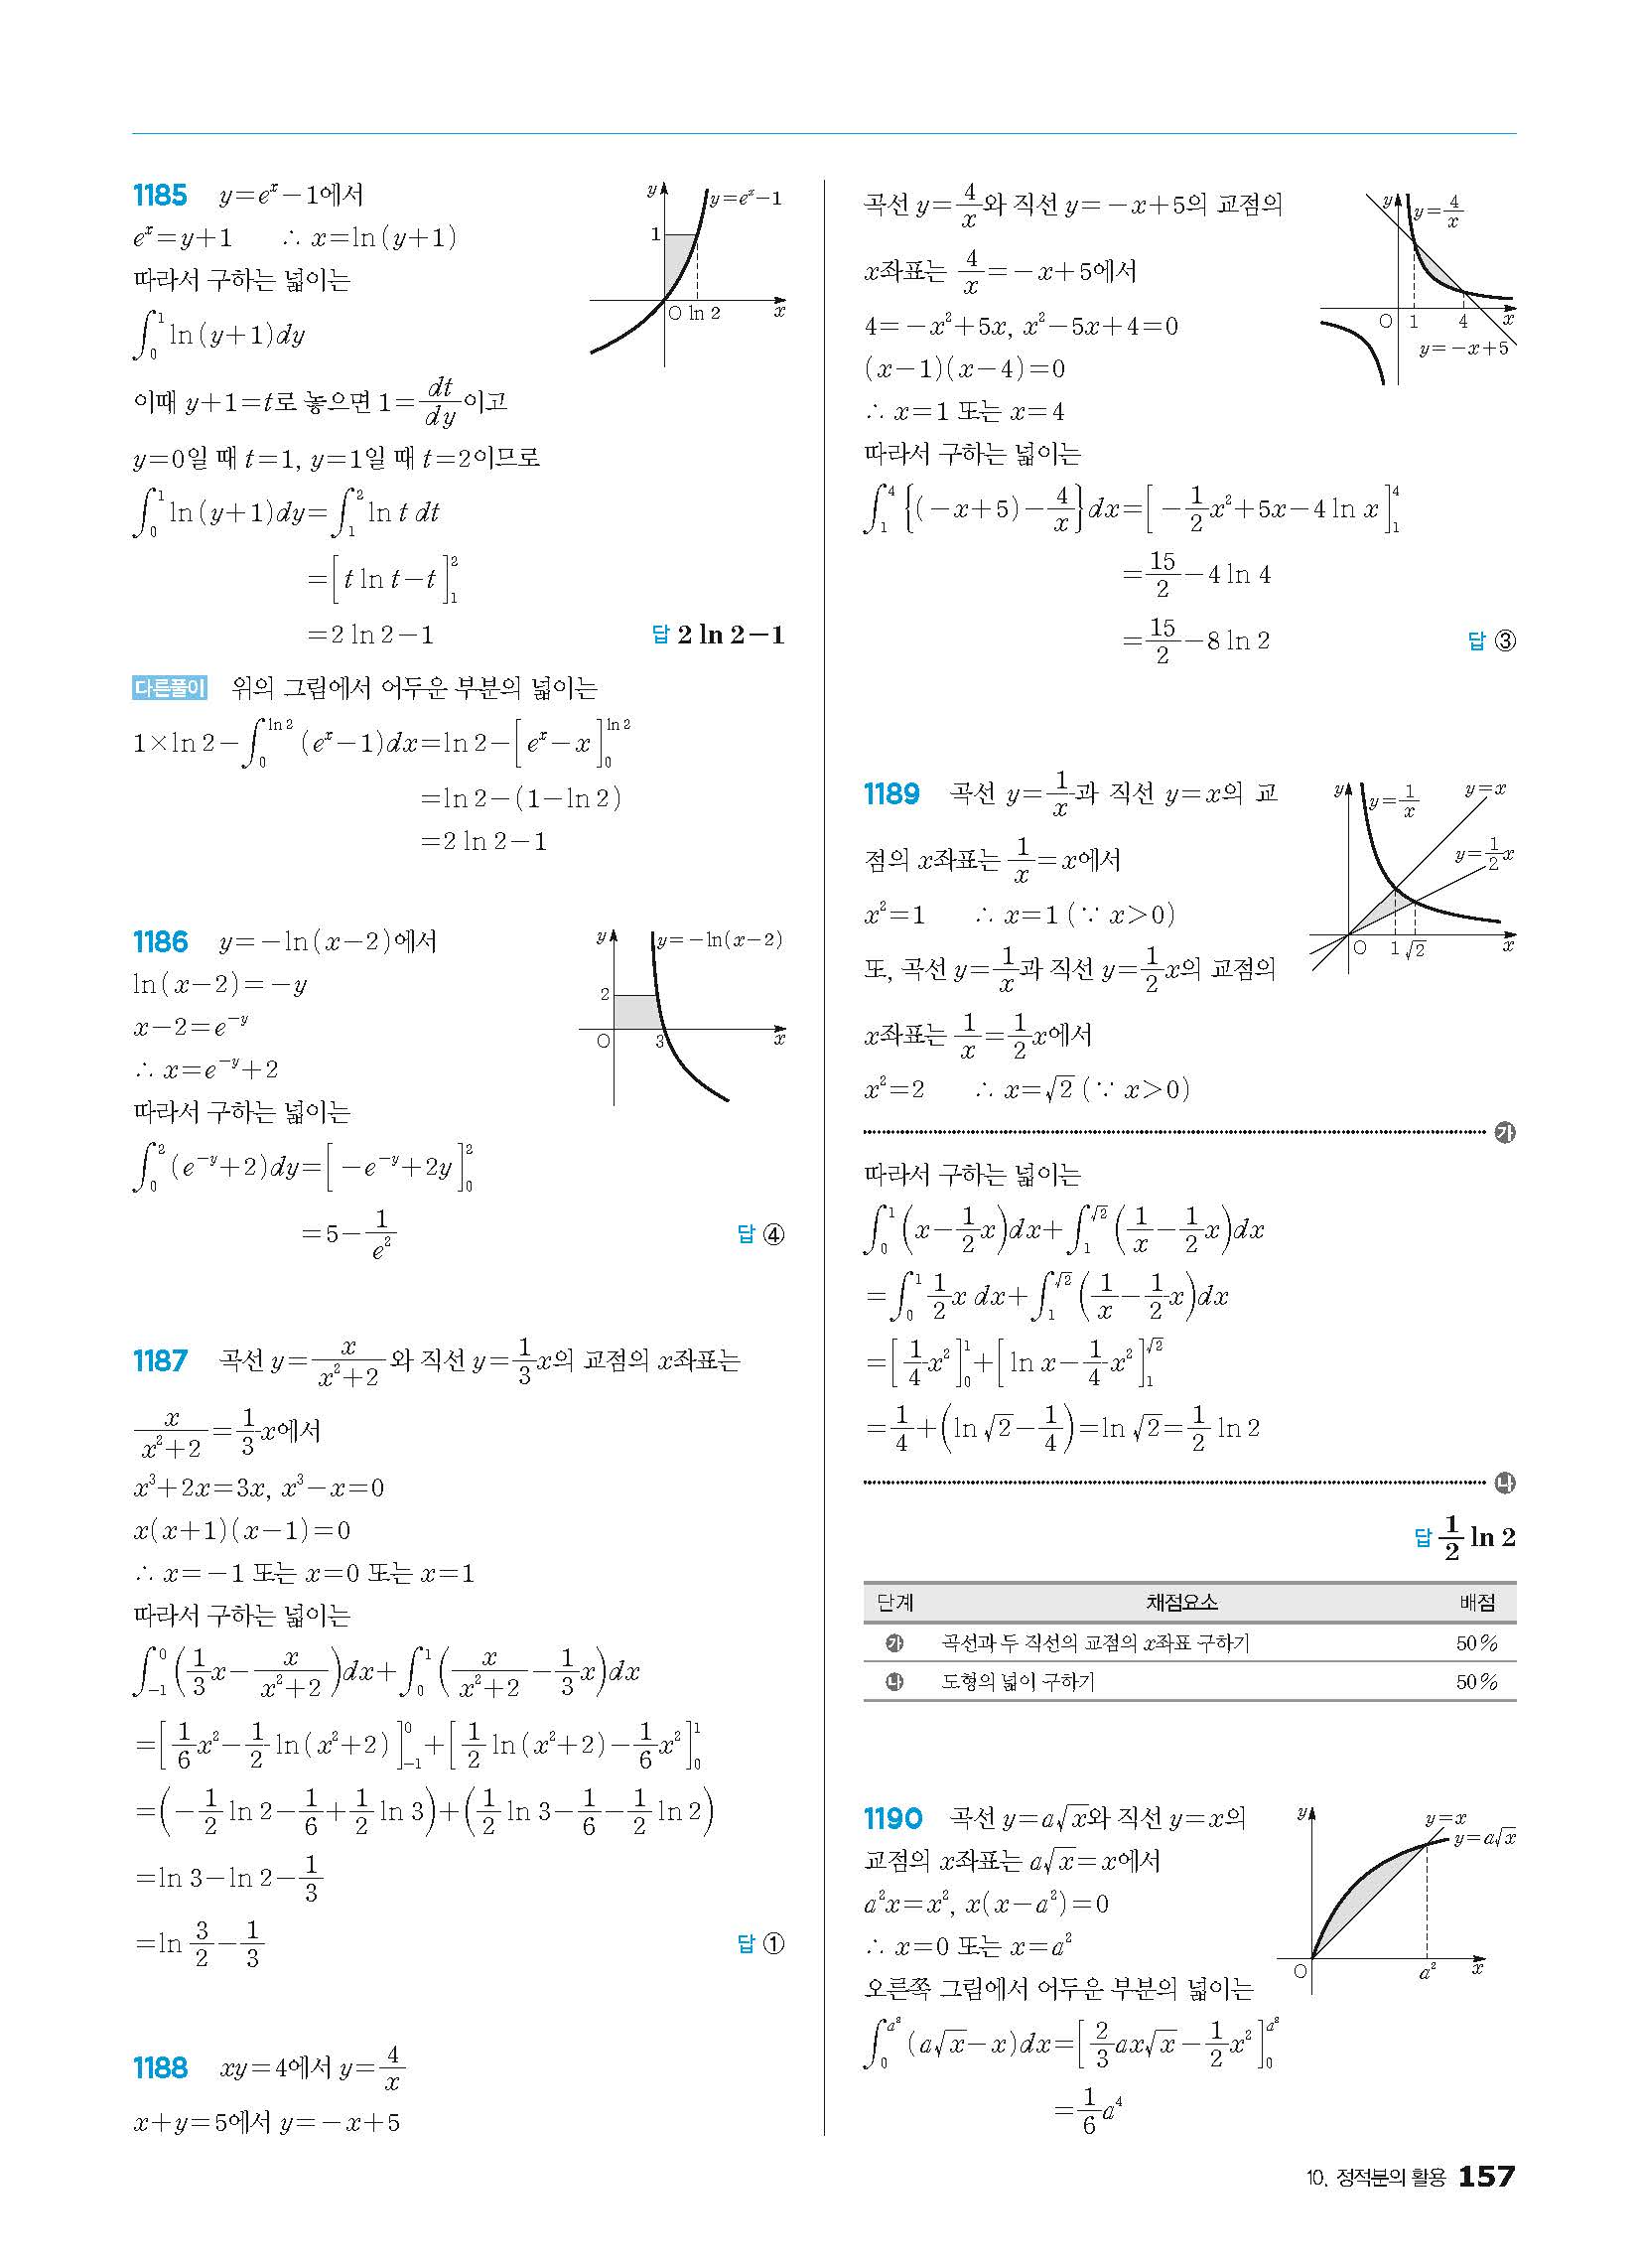 1185 y=e^x-1에서
e^x=y+1 ∴ x=ln(y+1)
따라서 구하는 넓이는
∫_0^1 ln(y+1)dy
이때 y+1=t로 놓으면 1=dt/dy이고
y=0일 때 t=1, y=1일 때 t=2이므로
∫_0^1 ln(y+1)dy=∫_1^2 ln t dt
=[t ln t-t]_1^2
=2 ln 2-1 답 2 ln 2-1
y
y=e^x-1
1
O ln 2 x
다른풀이 위의 그림에서 어두운 부분의 넓이는
1×ln 2-∫_0^{ln 2} (e^x-1)dx=ln 2-[e^x-x]_0^{ln 2}
=ln 2-(1-ln 2)
=2 ln 2-1
1186 y=-ln(x-2)에서
ln(x-2)=-y
x-2=e^{-y}
∴ x=e^{-y}+2
따라서 구하는 넓이는
∫_0^2 (e^{-y}+2)dy=[-e^{-y}+2y]_0^2
=5-1/e^2 답 ④
y y=-ln(x-2)
2
O 3 x
1187 곡선 y=x/(x^2+2)와 직선 y=1/3 x의 교점의 x좌표는
x/(x^2+2)=1/3 x에서
x^3+2x=3x, x^3-x=0
x(x+1)(x-1)=0
∴ x=-1 또는 x=0 또는 x=1
따라서 구하는 넓이는
∫_{-1}^0 (1/3 x-x/(x^2+2))dx+∫_0^1 (x/(x^2+2)-1/3 x)dx
=[1/6 x^2-1/2 ln(x^2+2)]_{-1}^0+[1/2 ln(x^2+2)-1/6 x^2]_0^1
=(-1/2 ln 2-1/6+1/2 ln 3)+(1/2 ln 3-1/6-1/2 ln 2)
=ln 3-ln 2-1/3
=ln 3/2-1/3 답 ①
1188 xy=4에서 y=4/x
x+y=5에서 y=-x+5
곡선 y=4/x와 직선 y=-x+5의 교점의
x좌표는 4/x=-x+5에서
4=-x^2+5x, x^2-5x+4=0
(x-1)(x-4)=0
∴ x=1 또는 x=4
따라서 구하는 넓이는
∫_1^4 {(-x+5)-4/x}dx=[-1/2 x^2+5x-4 ln x]_1^4
=15/2-4 ln 4
=15/2-8 ln 2 답 ③
y y=4/x
O 1 4 x
y=-x+5
1189 곡선 y=1/x과 직선 y=x의 교
점의 x좌표는 1/x=x에서
x^2=1 ∴ x=1 (∵ x>0)
또, 곡선 y=1/x과 직선 y=1/2 x의 교점의
x좌표는 1/x=1/2 x에서
x^2=2 ∴ x=√2 (∵ x>0)
㉮
y y=1/x y=x
y=1/2 x
O 1 √2 x
따라서 구하는 넓이는
∫_0^1 (x-1/2 x)dx+∫_1^{√2} (1/x-1/2 x)dx
=∫_0^1 1/2 x dx+∫_1^{√2} (1/x-1/2 x)dx
=[1/4 x^2]_0^1+[ln x-1/4 x^2]_1^{√2}
=1/4+(ln √2-1/4)=ln √2=1/2 ln 2
㉯
답 1/2 ln 2
단계 채점요소 배점
㉮ 곡선과 두 직선의 교점의 x좌표 구하기 50%
㉯ 도형의 넓이 구하기 50%
1190 곡선 y=a√x와 직선 y=x의
교점의 x좌표는 a√x=x에서
a^2x=x^2, x(x-a^2)=0
∴ x=0 또는 x=a^2
오른쪽 그림에서 어두운 부분의 넓이는
∫_0^{a^2} (a√x-x)dx=[2/3 ax√x-1/2 x^2]_0^{a^2}
=1/6 a^4
y y=x
y=a√x
O a^2 x
10. 정적분의 활용 157